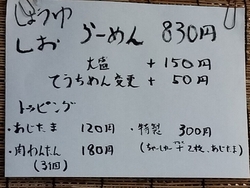 しょうゆ
しお らーめん 830円
大盛 +150円
てうちめん変更 +50円
トッピング
・あじたま 120円
・特製 300円
・肉わんたん 180円
(3個)
(ちゃーしゅー 2枚、あじたま)